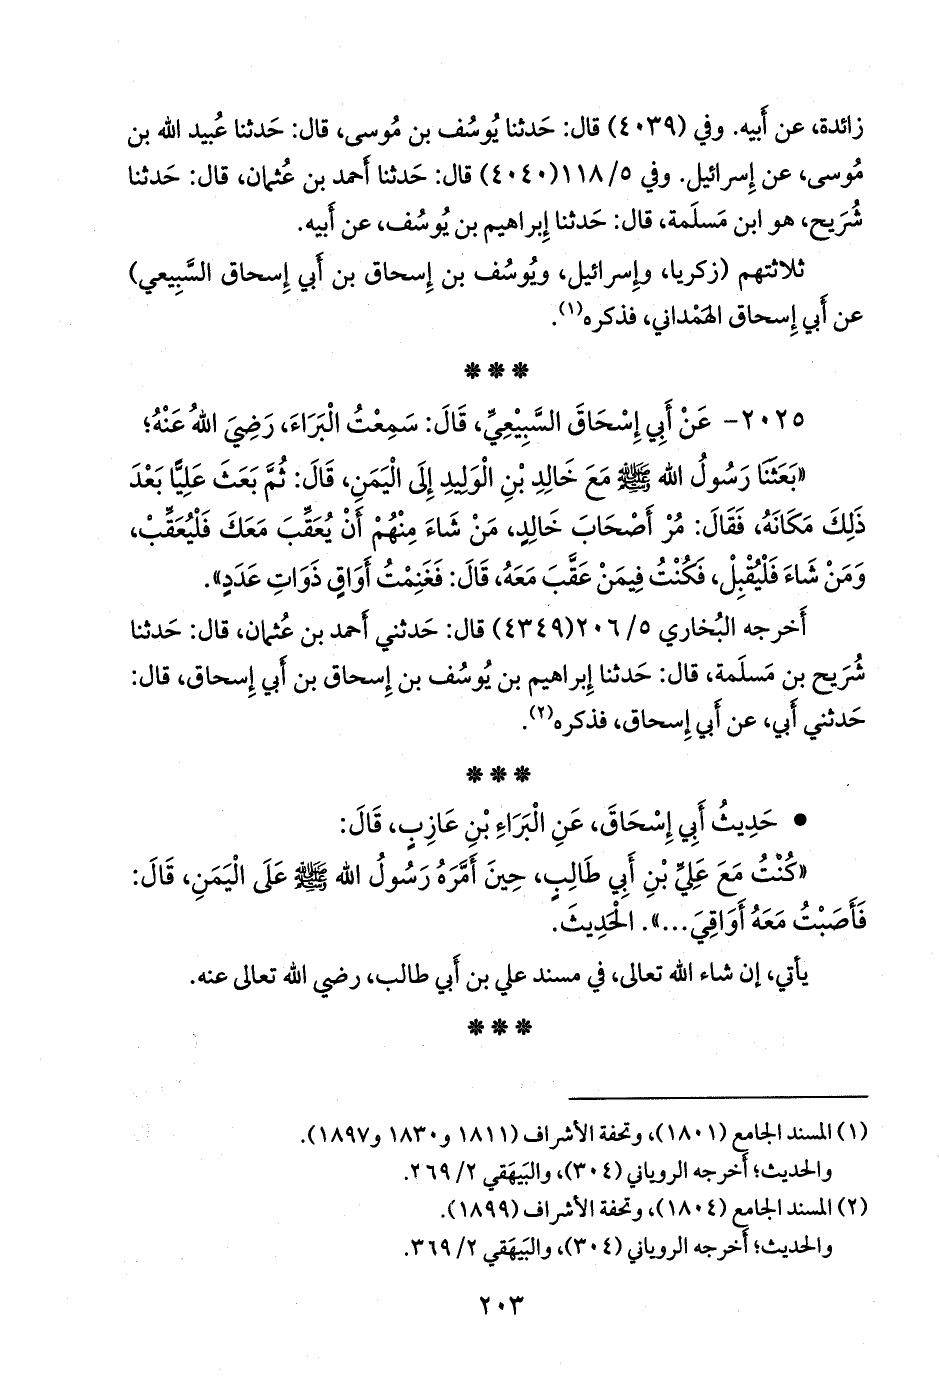 زائدة، عن أَبيه. وفي (٤٠٣٩) قال: حَدثنا يُوسُف بن مُوسى، قال: حَدثنا عُبيد الله بن
مُوسى، عن إِسرائيل. وفي ٥/ ١١٨(٤٠٤٠) قال: حَدثنا أَحمد بن عُثمان، قال: حَدثنا
شُرَيح، هو ابن مَسلَمة، قال: حَدثنا إِبراهيم بن يُوسُف، عن أَبيه.
ثلاثتهم (زكريا، وإِسرائيل، ويُوسُف بن إِسحاق بن أَبي إِسحاق السَّبِيعي)
عن أَبي إِسحاق الهَمْداني، فذكره(١).
***
٢٠٢٥- عَنْ أَبِي إِسْحَاقَ السَّبِيْعِيِّ، قَالَ: سَمِعْتُ الْبَرَاءَ، رَضِيَ اللهُ عَنْهُ؛
«بَعَثَنَا رَسُولُ الله ﷺ مَعَ خَالِدِ بْنِ الْوَلِيدِ إِلَى الْيَمَنِ، قَالَ: ثُمَّ بَعَثَ عَلِيًّا بَعْدَ
ذَلِكَ مَكَانَهُ، فَقَالَ: مُرْ أَصْحَابَ خَالِدٍ، مَنْ شَاءَ مِنْهُمْ أَنْ يُعَقِّبَ مَعَكَ فَلْيُعَقِّبْ،
وَمَنْ شَاءَ فَلْيُقْبِلْ، فَكُنْتُ فِيمَنْ عَقَّبَ مَعَهُ، قَالَ: فَغَنِمْتُ أَوَاقٍ ذَوَاتِ عَدَدٍ».
أَخرجه البُخاري ٥/ ٢٠٦(٤٣٤٩) قال: حَدثني أَحمد بن عُثمان، قال: حَدثنا
شُرَيح بن مَسلَمة، قال: حَدثنا إِبراهيم بن يُوسُف بن إِسحاق بن أَبي إِسحاق، قال:
حَدثني أَبي، عن أَبي إِسحاق، فذكره(٢).
***
● حَدِيثُ أَبِي إِسْحَاقَ، عَنِ الْبَرَاءِ بْنِ عَازِبٍ، قَالَ:
«كُنْتُ مَعَ عَلِيِّ بْنِ أَبِي طَالِبٍ، حِينَ أَمَّرَهُ رَسُولُ الله ﷺ عَلَى الْيَمَنِ، قَالَ:
فَأَصَبْتُ مَعَهُ أَوَاقِيَ...». الْحَدِيثَ.
يأتي، إن شاء الله تعالى، في مسند علي بن أَبي طالب، رضي الله تعالى عنه.
***
(١) المسند الجامع (١٨٠١)، وتحفة الأشراف (١٨١١ و١٨٣٠ و١٨٩٧).
والحديث؛ أَخرجه الروياني (٣٠٤)، والبَيهَقي ٢/ ٢٦٩.
(٢) المسند الجامع (١٨٠٤)، وتحفة الأشراف (١٨٩٩).
والحديث؛ أَخرجه الروياني (٣٠٤)، والبَيهَقي ٢/ ٣٦٩.
٢٠٣